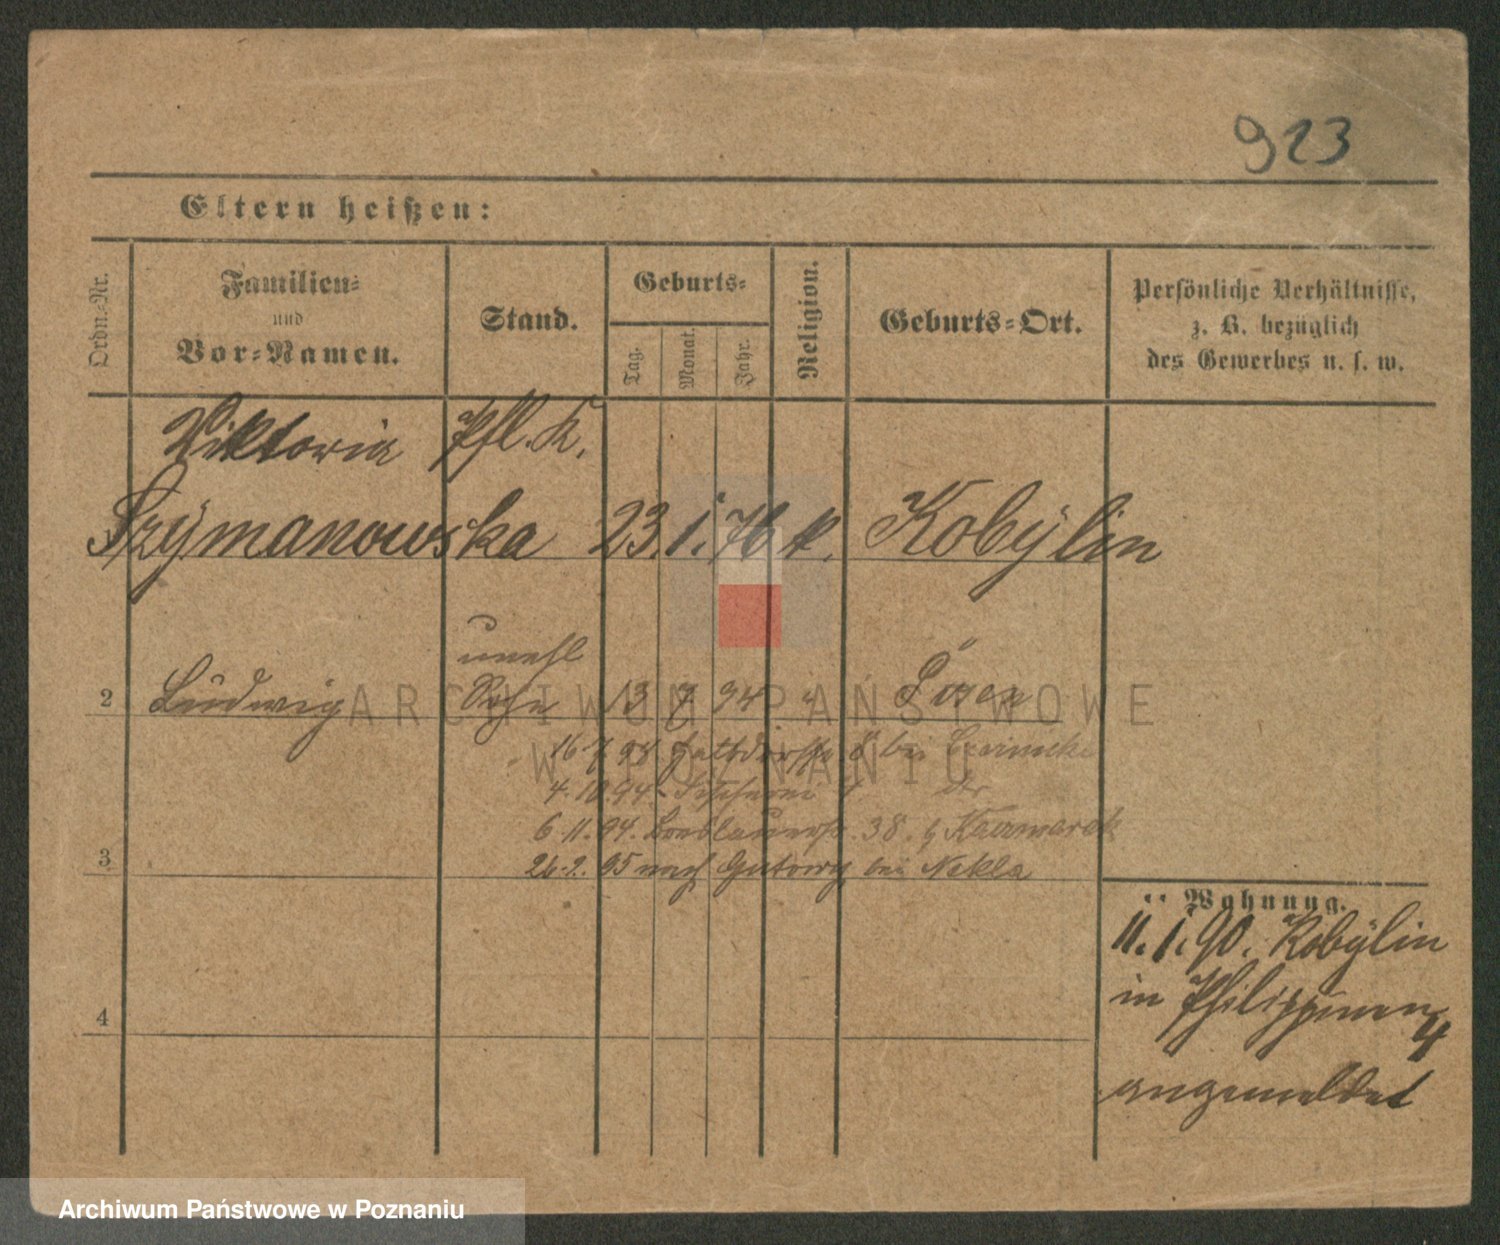 923
Eltern heißen:
Ordn.-Nr.
Familien-
und
Vor-Namen.
Stand.
Geburts-
Tag.
Monat.
Jahr.
Religion.
Geburts-Ort.
Persönliche Verhältnisse,
z. B. bezüglich
des Gewerbes u. s. w.
Viktoria Pfl. K.
1 Szymanowska 23. 1. 76 k. Kobylin
unehl
2 Ludwig Sohn 13 7 94 " Posen
ARCHIWUM PAŃSTWOWE
W POZNANIU
16 7 94 bei
4. 10. 94
6. 11. 94. Breslauerstr. 38. b Kaczmarek
3 26. 2. 95 nach Gutowy bei Nekla
Wohnung.
11. 1. 90. Kobylin
in
4
angemeldet
4
Archiwum Państwowe w Poznaniu